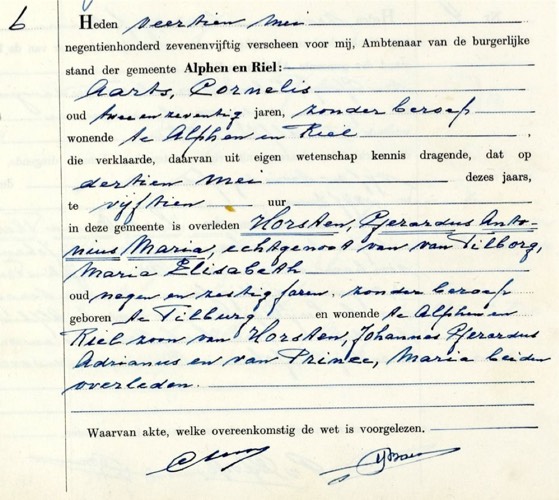 6
Heden veertien mei
negentienhonderd zevenenvijftig verscheen voor mij, Ambtenaar van de burgerlijke
stand der gemeente Alphen en Riel:
Aarts, Cornelis
oud twee en zeventig jaren, zonder beroep
wonende te Alphen en Riel,
die verklaarde, daarvan uit eigen wetenschap kennis dragende, dat op
dertien mei dezes jaars,
te vijftien uur
in deze gemeente is overleden Horsten, Gerardus Anto-
nius Maria, echtgenoot van van Tilborg,
Maria Elisabeth
oud negen en zestig jaren, zonder beroep
geboren te Tilburg en wonende te Alphen en
Riel zoon van Horsten, Johannes Gerardus
Adrianus en van Prince, Maria beiden
overleden.
Waarvan akte, welke overeenkomstig de wet is voorgelezen.